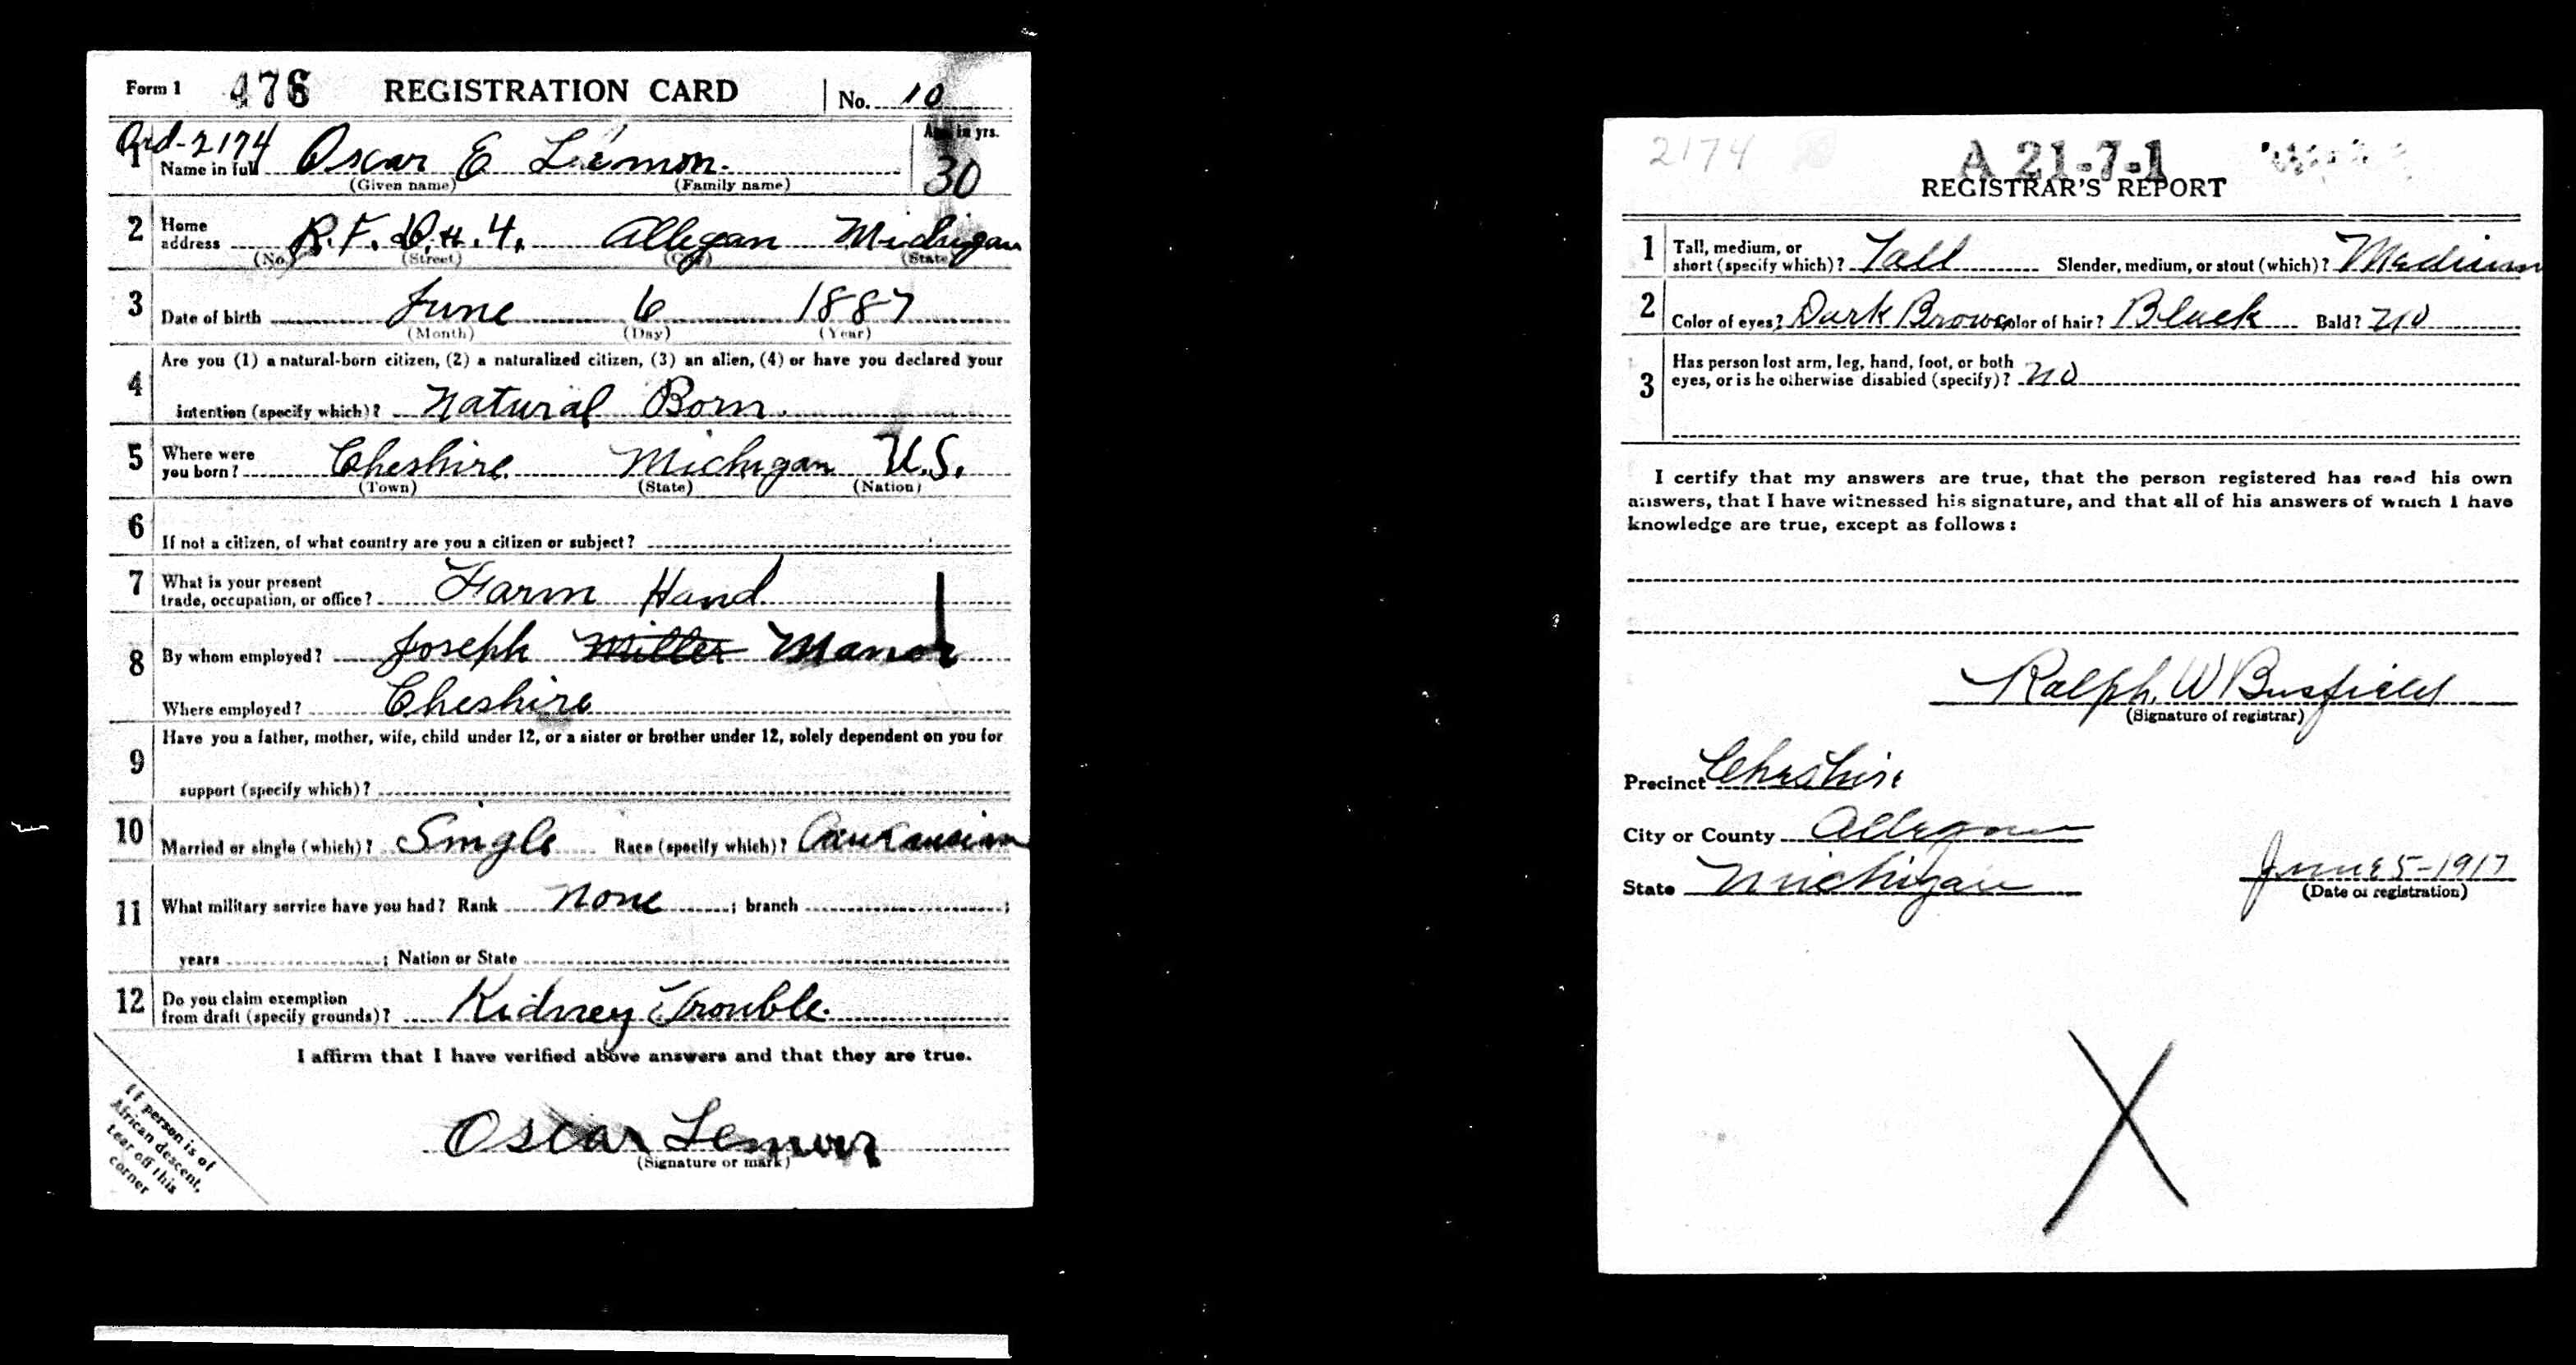 Form 1 476 REGISTRATION CARD No. 10
Ord-2174
1 Name in full Oscar E Lemon. Age in yrs. 30
(Given name) (Family name)
2 Home address R.F.D. #. 4. Allegan Michigan
(No.) (Street) (City) (State)
3 Date of birth June 6 1887
(Month) (Day) (Year)
4 Are you (1) a natural-born citizen, (2) a naturalized citizen, (3) an alien, (4) or have you declared your
intention (specify which)? Natural Born.
5 Where were you born? Cheshire Michigan U.S.
(Town) (State) (Nation)
6 If not a citizen, of what country are you a citizen or subject?
7 What is your present trade, occupation, or office? Farm Hand
8 By whom employed? Joseph Miller Manor
Where employed? Cheshire
9 Have you a father, mother, wife, child under 12, or a sister or brother under 12, solely dependent on you for
support (specify which)?
10 Married or single (which)? Single Race (specify which)? Caucausian
11 What military service have you had? Rank None ; branch ;
years ; Nation or State
12 Do you claim exemption from draft (specify grounds)? Kidney Trouble.
I affirm that I have verified above answers and that they are true.
Oscar Lemon
(Signature or mark)
If person is of
African descent,
tear off this
corner
2174 A 21-7-1
REGISTRAR'S REPORT
1 Tall, medium, or short (specify which)? Tall Slender, medium, or stout (which)? Medium
2 Color of eyes? Dark Brown Color of hair? Black Bald? No
3 Has person lost arm, leg, hand, foot, or both
eyes, or is he otherwise disabled (specify)? No
I certify that my answers are true, that the person registered has read his own
answers, that I have witnessed his signature, and that all of his answers of which I have
knowledge are true, except as follows:
Ralph. W Busfield
(Signature of registrar)
Precinct Cheshire
City or County Allegan
State Michigan June 5-1917
(Date of registration)